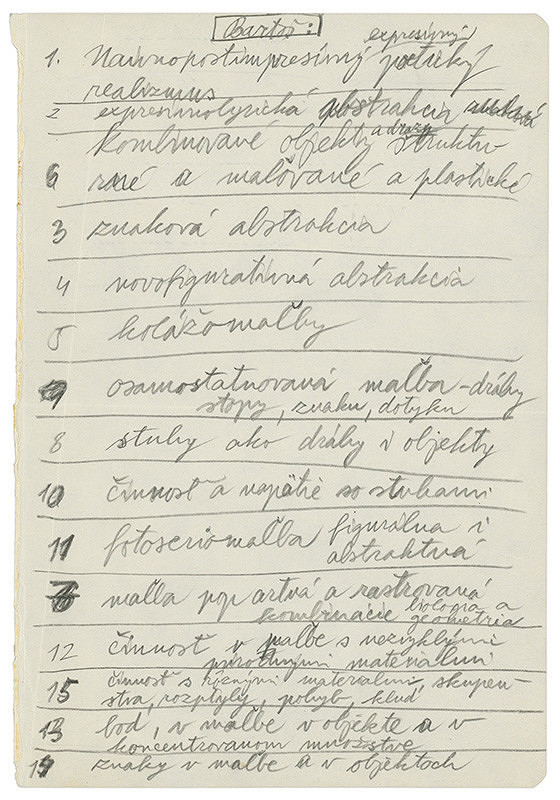 Bartoš:
expresívny
1. Naivnopostimpresívny poetický
realizmus
2 expresívnolyrická abstrakcia
kombinované objekty a drázy štruktu-
6 rané a maľované a plastické
3 znaková abstrakcia
4 novofiguratívná abstrakcia
5 kolážomaľby
9 osamostatňovaná maľba - dráhy
stopy, znaku, dotyku
8 stuhy ako dráhy i objekty
10 činnosť a napätie so stuhami
11 fotosériomaľba figurálna i
abstraktná
maľba pop artná a rastrovaná
kombinácie biologna a
geometria
12 činnosť v maľbe s nezvyklými
prírodnými materiálmi
15 činnosť s rôznymi materiálmi, skupen-
stva, rozptyly, pohyb, kľud
13 bod, v maľbe v objekte a v
koncentrovanom množstve
14 znaky v maľbe a v objektoch